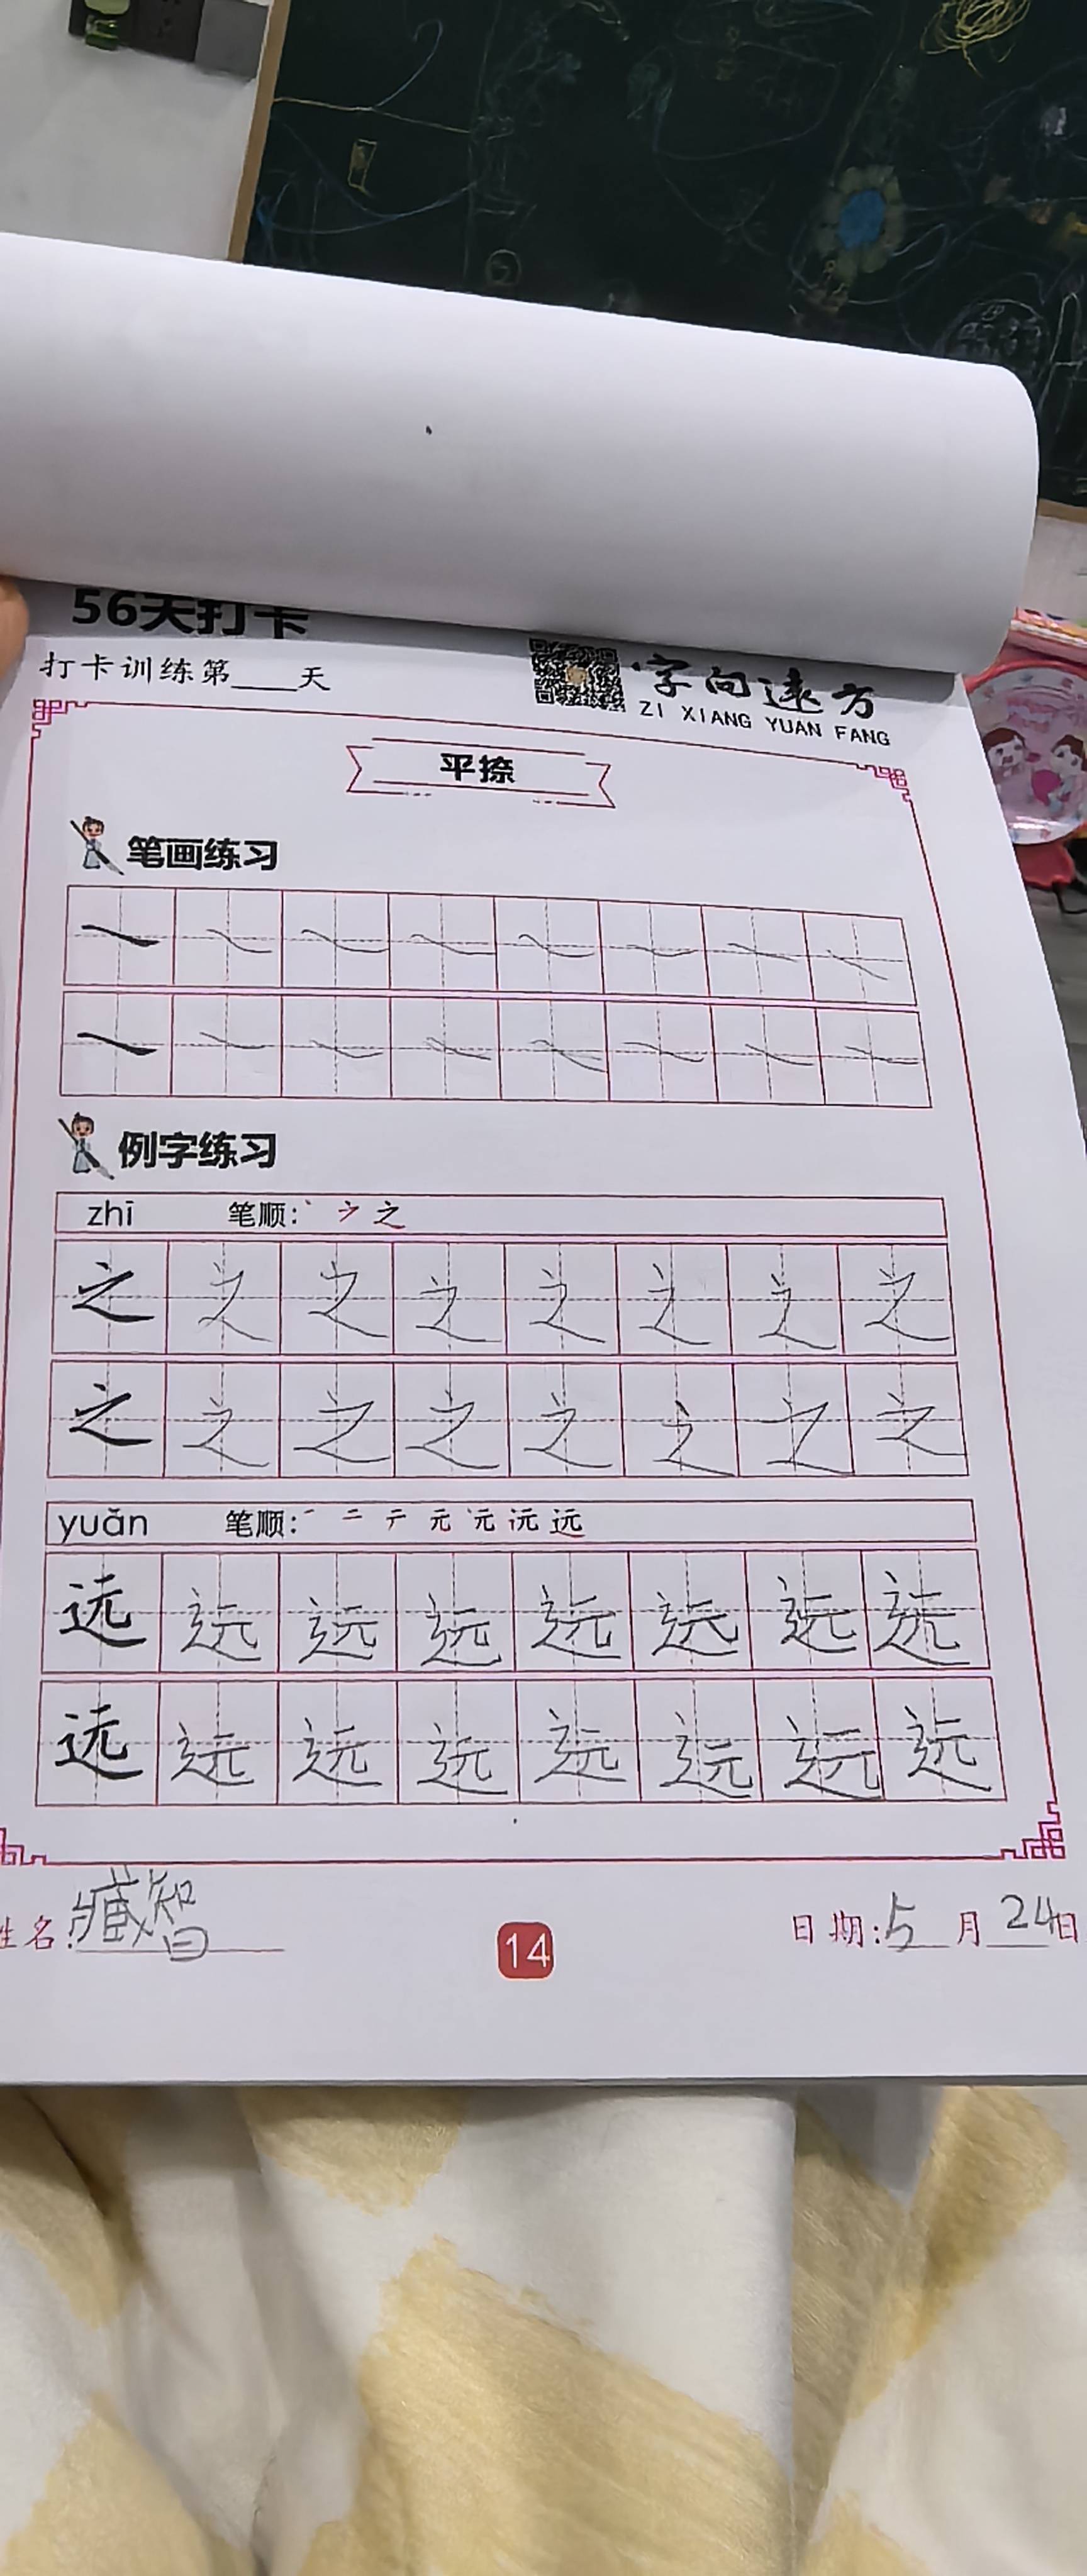 56天打卡
打卡训练第____天
字向远方
ZI XIANG YUAN FANG
平捺
笔画练习
例字练习
zhī 笔顺: 丶 之
之 之 之 之 之 之 之 之
之 之 之 之 之 之 之 之
yuǎn 笔顺: 一 二 テ 元 远
远 远 远 远 远 远 远 远
远 远 远 远 远 远 远 远
姓名: 臧智
14
日期: 5月24日